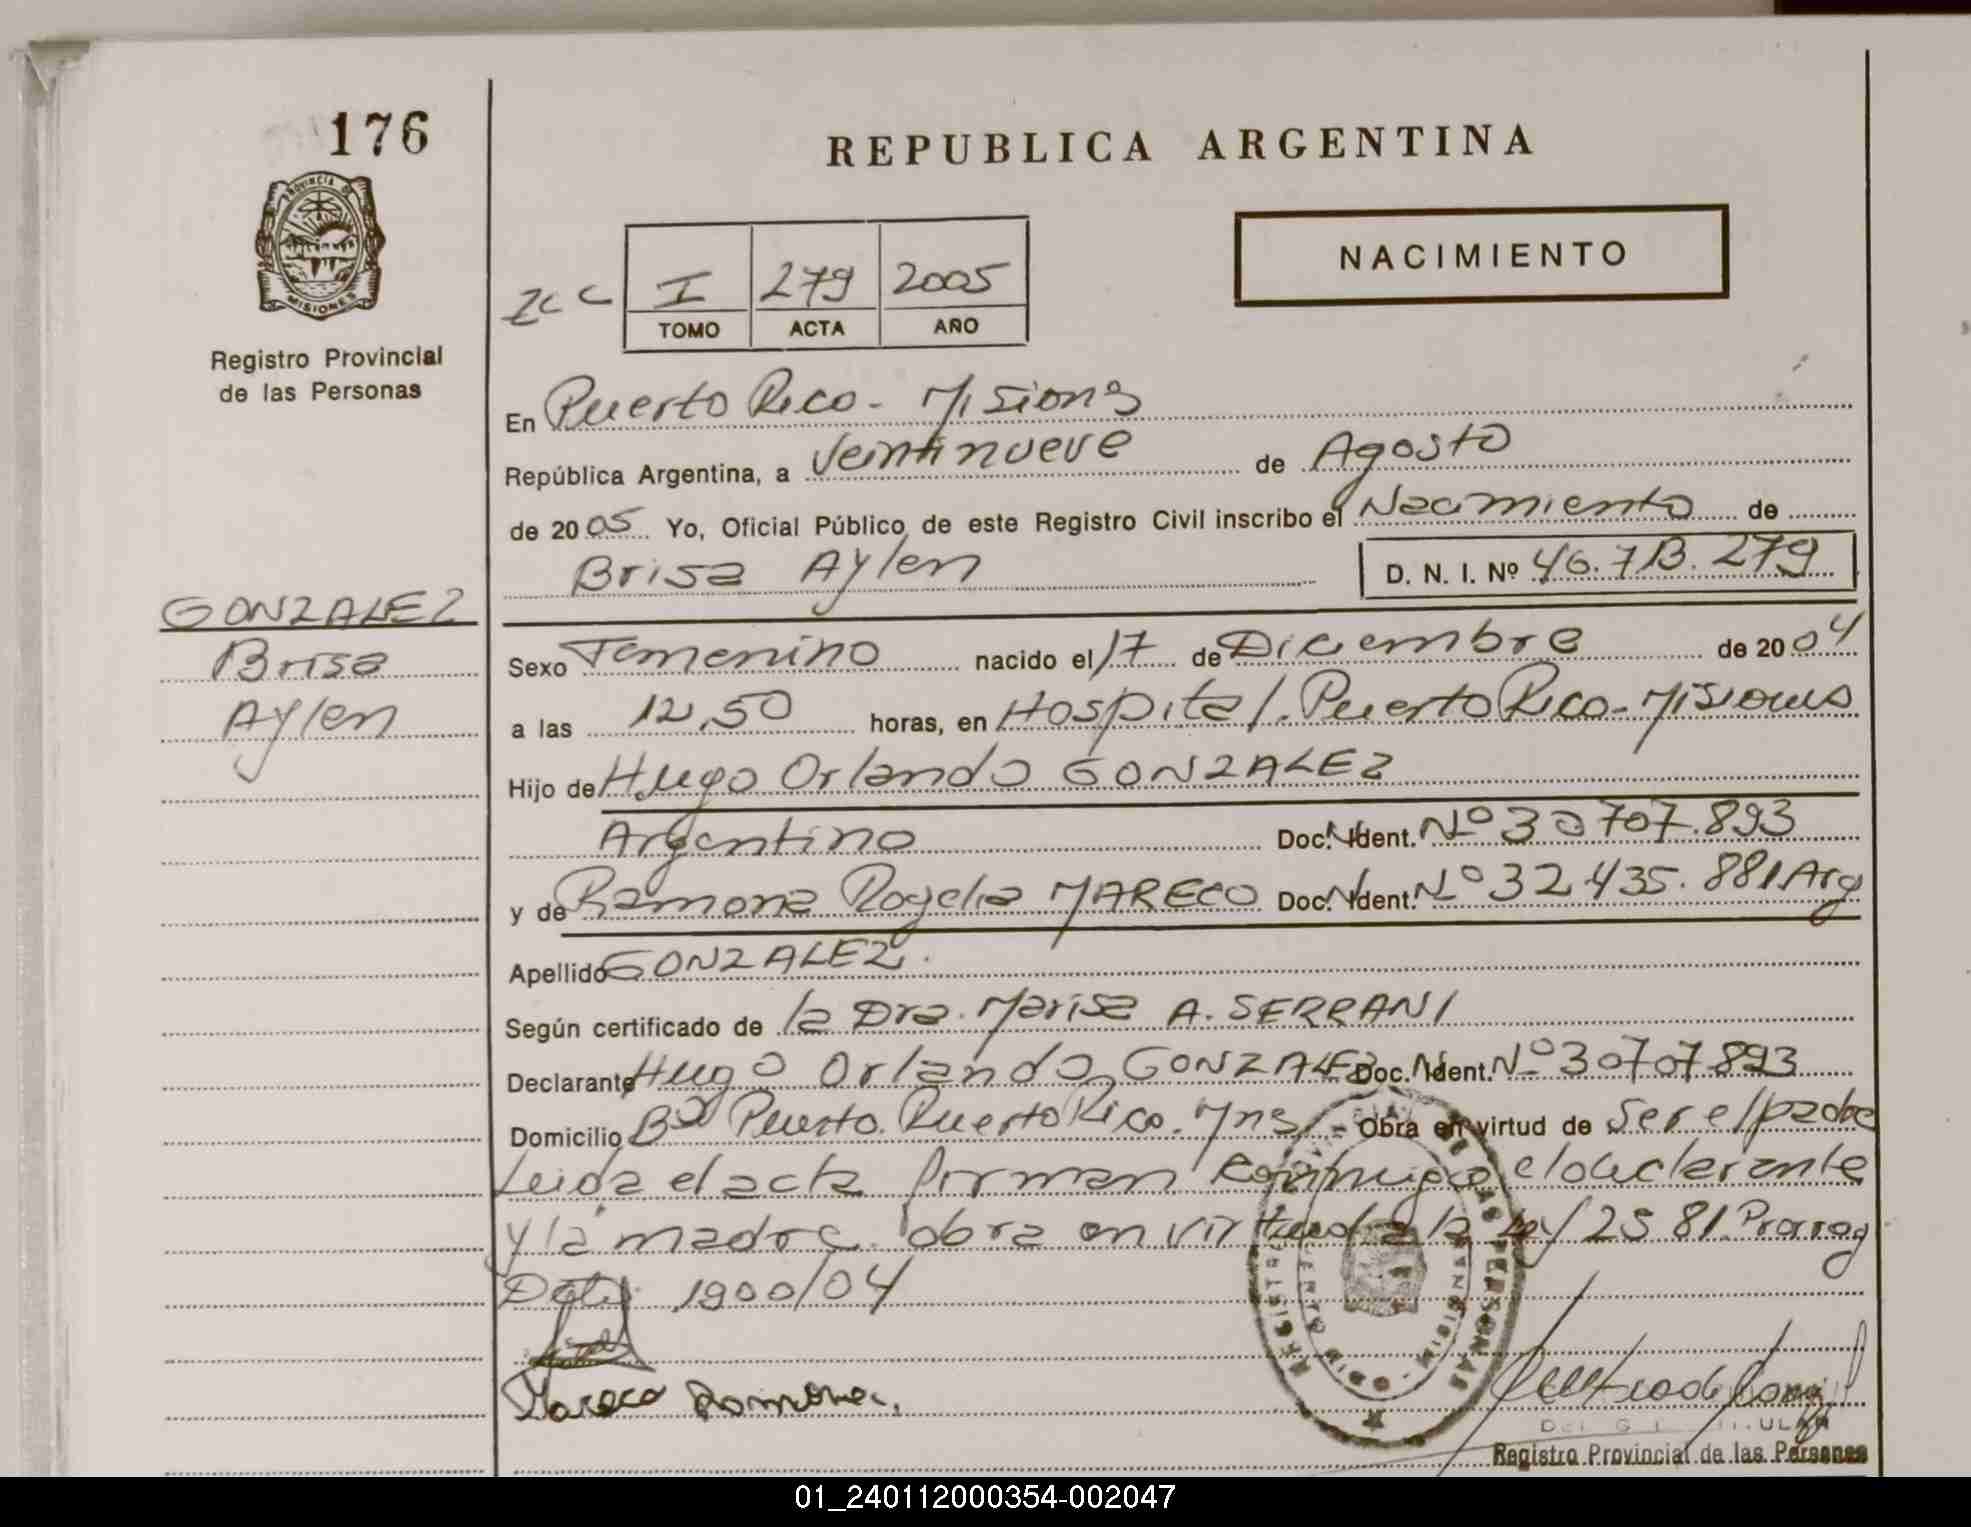 176
REPUBLICA ARGENTINA
PROVINCIA DE MISIONES
Registro Provincial
de las Personas
NACIMIENTO
I 279 2005
TOMO ACTA AÑO
En Puerto Rico - Misiones
República Argentina, a Veintinueve de Agosto
de 2005 Yo, Oficial Público de este Registro Civil inscribo el Nacimiento de
Brisa Aylen D. N. I. Nº 46.713.279
GONZALEZ
Brisa
Aylen
Sexo Femenino nacido el 17 de Diciembre de 2004
a las 12,50 horas, en Hospital. Puerto Rico - Misiones
Hijo de Hugo Orlando GONZALEZ
Argentino Doc. Ident. Nº 30707.893
y de Ramona Rogelia MARECO Doc. Ident. Nº 32.435.881 Arg
Apellido GONZALEZ.
Según certificado de la Dra. Marisa A. SERRANI
Declarante Hugo Orlando GONZALEZ Doc. Ident. Nº 30707893
Domicilio Bº Puerto. Puerto Rico. Mns Obra en virtud de Ser el padre
Leida el acta firman conmigo el declarante
y la madre. obra en virtud a la Ley 25.81. Prorrog
1900/04
Mareco Ramona.
Registro Provincial de las Personas
01_240112000354-002047